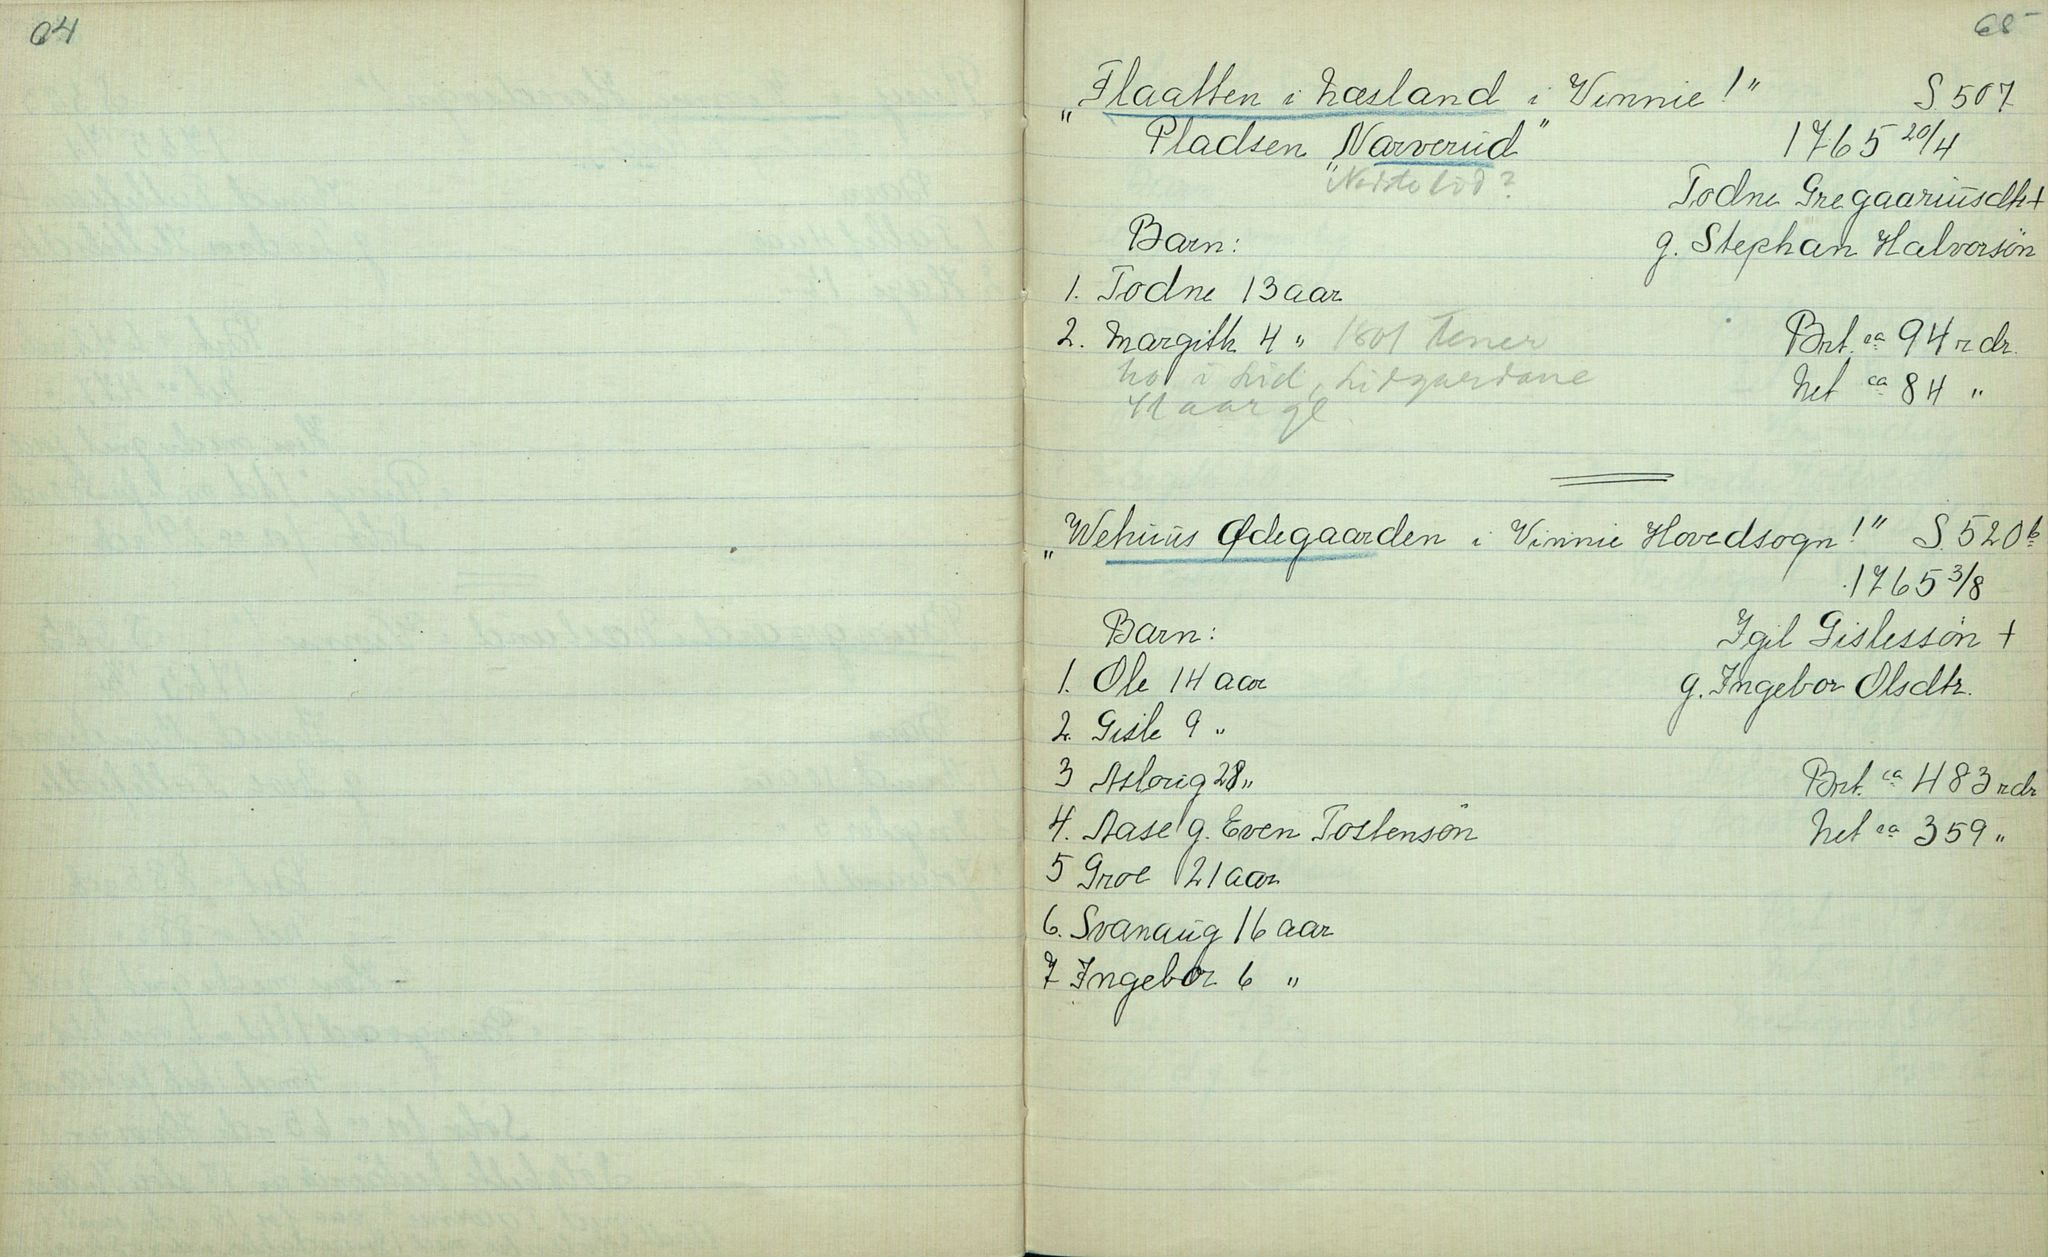 64
65
"Flaatten i Læsland i Vinnie!" S 507
Pladsen "Narverud" 1765 20/4
Nordstolid? Todne Gregaariusdtr +
Barn: g. Stephan Halvorsön
1. Todne 13 aar
2. Margith 4 " 1801 tener Brt. ca 94 rdr.
ho i Lid, Lidgardane Net ca 84 "
41 aar gl
"Wehuus Ødegaarden i Vinnie Hovedsogn!" S. 520 b
1765 3/8
Barn: Igil Gislessön +
1. Ole 14 aar g. Ingebor Olsdtr.
2. Gisle 9 "
3 Asloug 28 " Brt. ca 483 rdr
4. Aase g. Even Tostensön Net ca 359 "
5 Groe 21 aar
6. Svanaug 16 aar
7 Ingebor 6 "